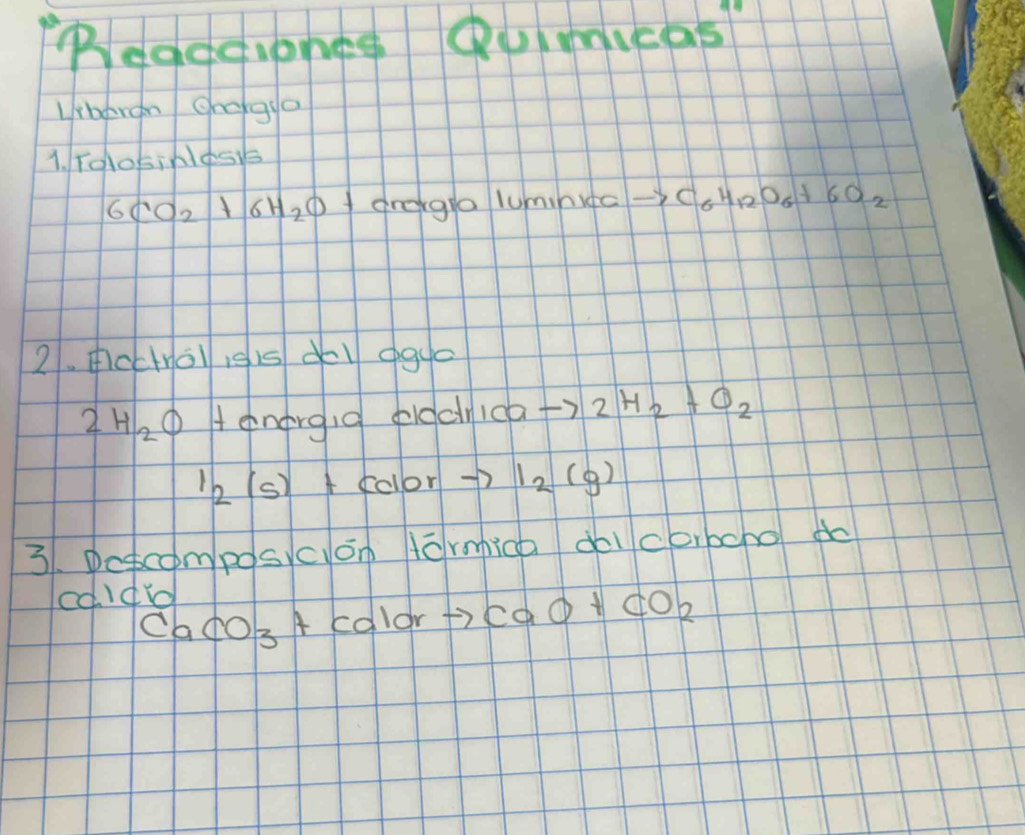 "Reacciones Quimicas"
Liberan energia
1. Fotosintesis
6CO₂ + 6H₂O + energia luminica → C₆H₁₂O₆ + 6O₂
2. Electrólisis del agua
2H₂O + energia electrica → 2H₂ + O₂
I₂ (s) + calor → I₂ (g)
3. Descomposición térmica del carbono de
calcio
CaCO₃ + calor → CaO + CO₂